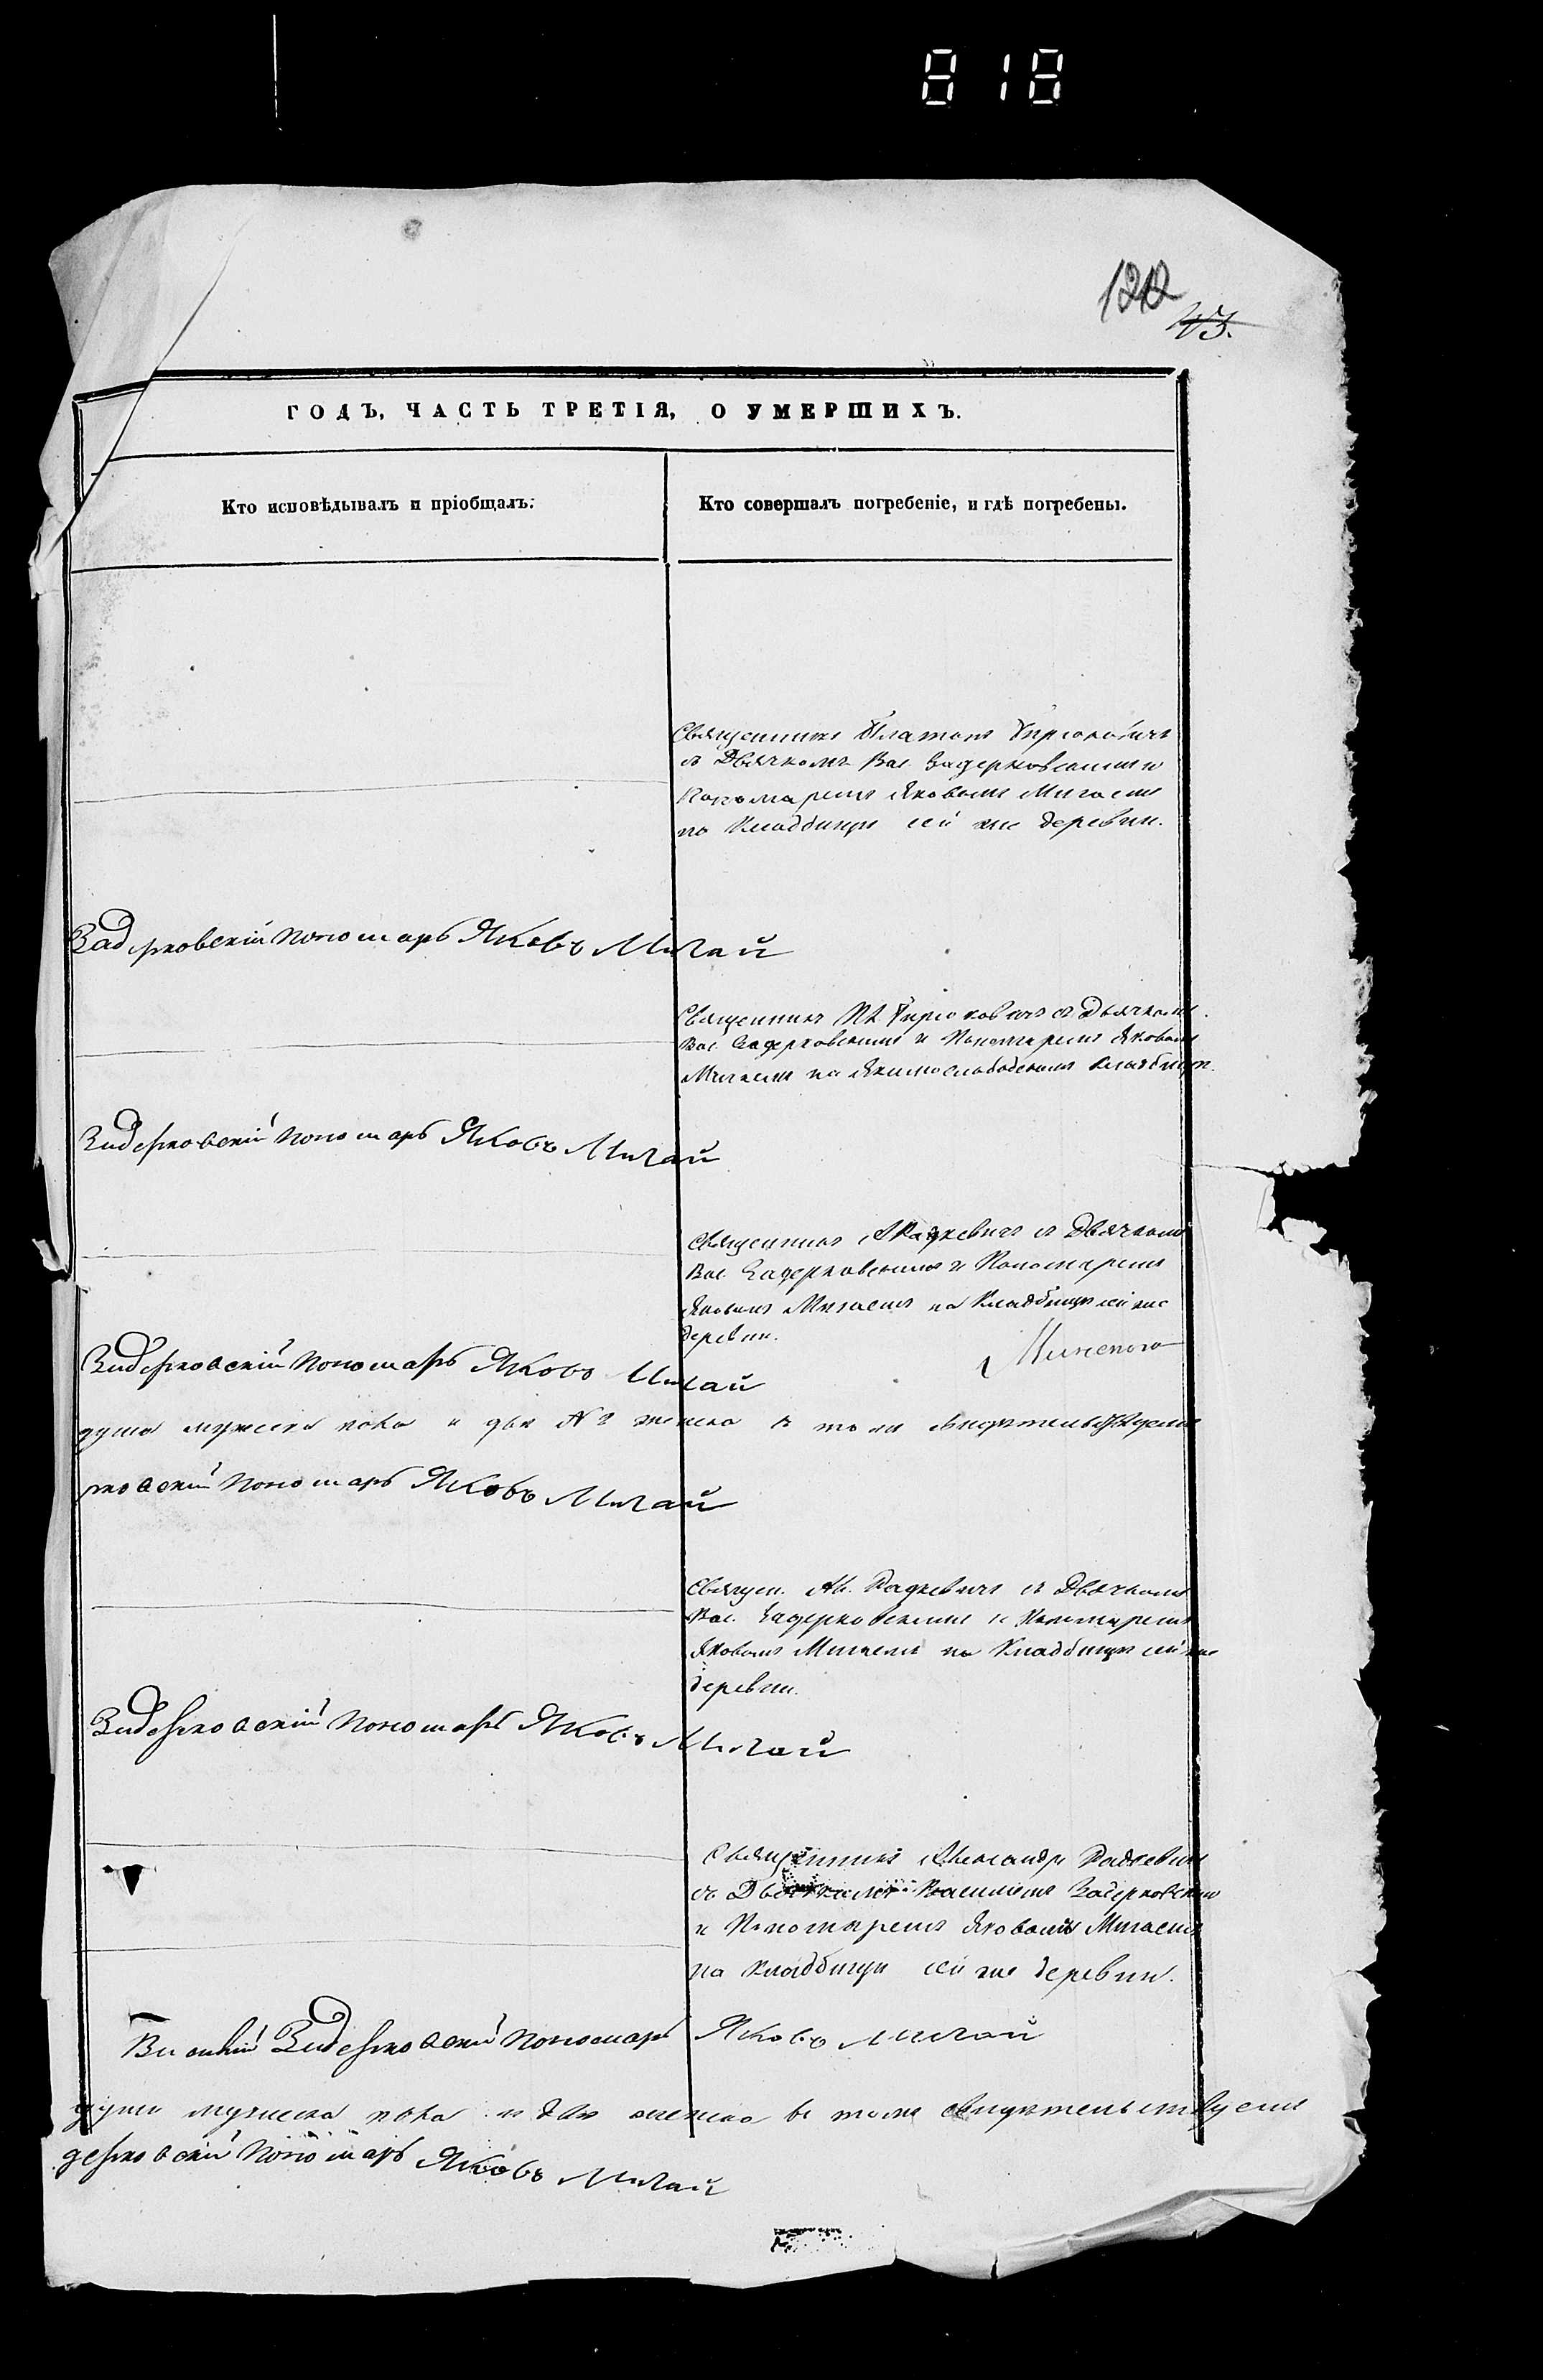 818
120
43.
ГОДЪ, ЧАСТЬ ТРЕТІЯ, О УМЕРШИХЪ.
Кто исповѣдывалъ и пріобщалъ.
Кто совершалъ погребеніе, и гдѣ погребены.
Священникъ Платонъ
съ Дьячкомъ Вас. Задерковскимъ и
Пономаремъ Яковомъ Мигаемъ
на Кладбищѣ сей же деревни.
Задерковскій пономарь Яковъ Мигай
Священникъ Пл. съ Дьячкомъ
Вас. Задерковскимъ и Пономаремъ Яковомъ
Мигаемъ на кладбищѣ.
Задерковскій пономарь Яковъ Мигай
Священникъ А Радкевичъ съ Дьячкомъ
Вас. Задерковскимъ и Пономаремъ
Яковомъ Мигаемъ на Кладбищѣ сей же
деревни.
Задерковскій пономарь Яковъ Мигай
душа мужеска пола и двѣ женска въ томъ свидѣтельствуемъ
рковскій пономарь Яковъ Мигай
Священ. Ал. Радкевичъ съ Дьячкомъ
Вас. Задерковскимъ и Пономаремъ
Яковомъ Мигаемъ на Кладбищѣ сей же
деревни.
Задерковскій пономарь Яковъ Мигай
Священникъ Александръ Радкевичъ
съ Дьячкомъ Василіемъ Задерковскимъ
и Пономаремъ Яковомъ Мигаемъ
на кладбищѣ сей же деревни.
Василій Задерковскій пономарь Яковъ Мигай
души мужеска пола и двѣ женска въ томъ свидѣтельствуемъ
дерковскій пономарь Яковъ Мигай